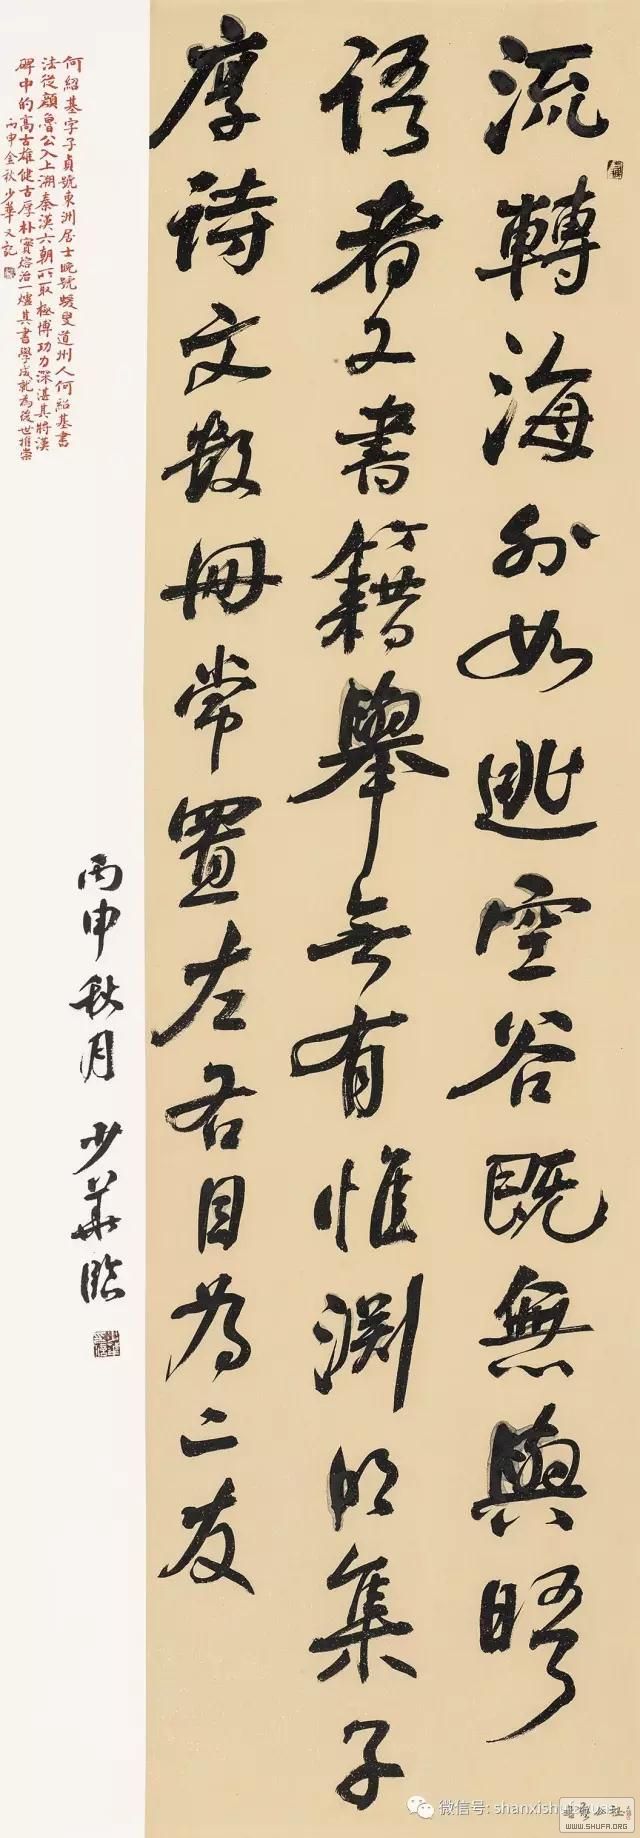 流轉海外如逃空谷既無與晤
語者又書籍舉無有惟渊明集子
厚詩文數冊常置左右目為二友
丙申秋月 少華臨
何紹基字子貞號東洲居士晚號蝯叟道州人何紹基書
法從顏魯公入上溯秦漢六朝所取極博功力深湛其將漢
碑中的高古雄健古厚朴實熔冶一爐其書學成就為後世推崇
丙申金秋少華又記
微信号: shanxishufayuan
書艺公社
WWW.SHUFA.ORG